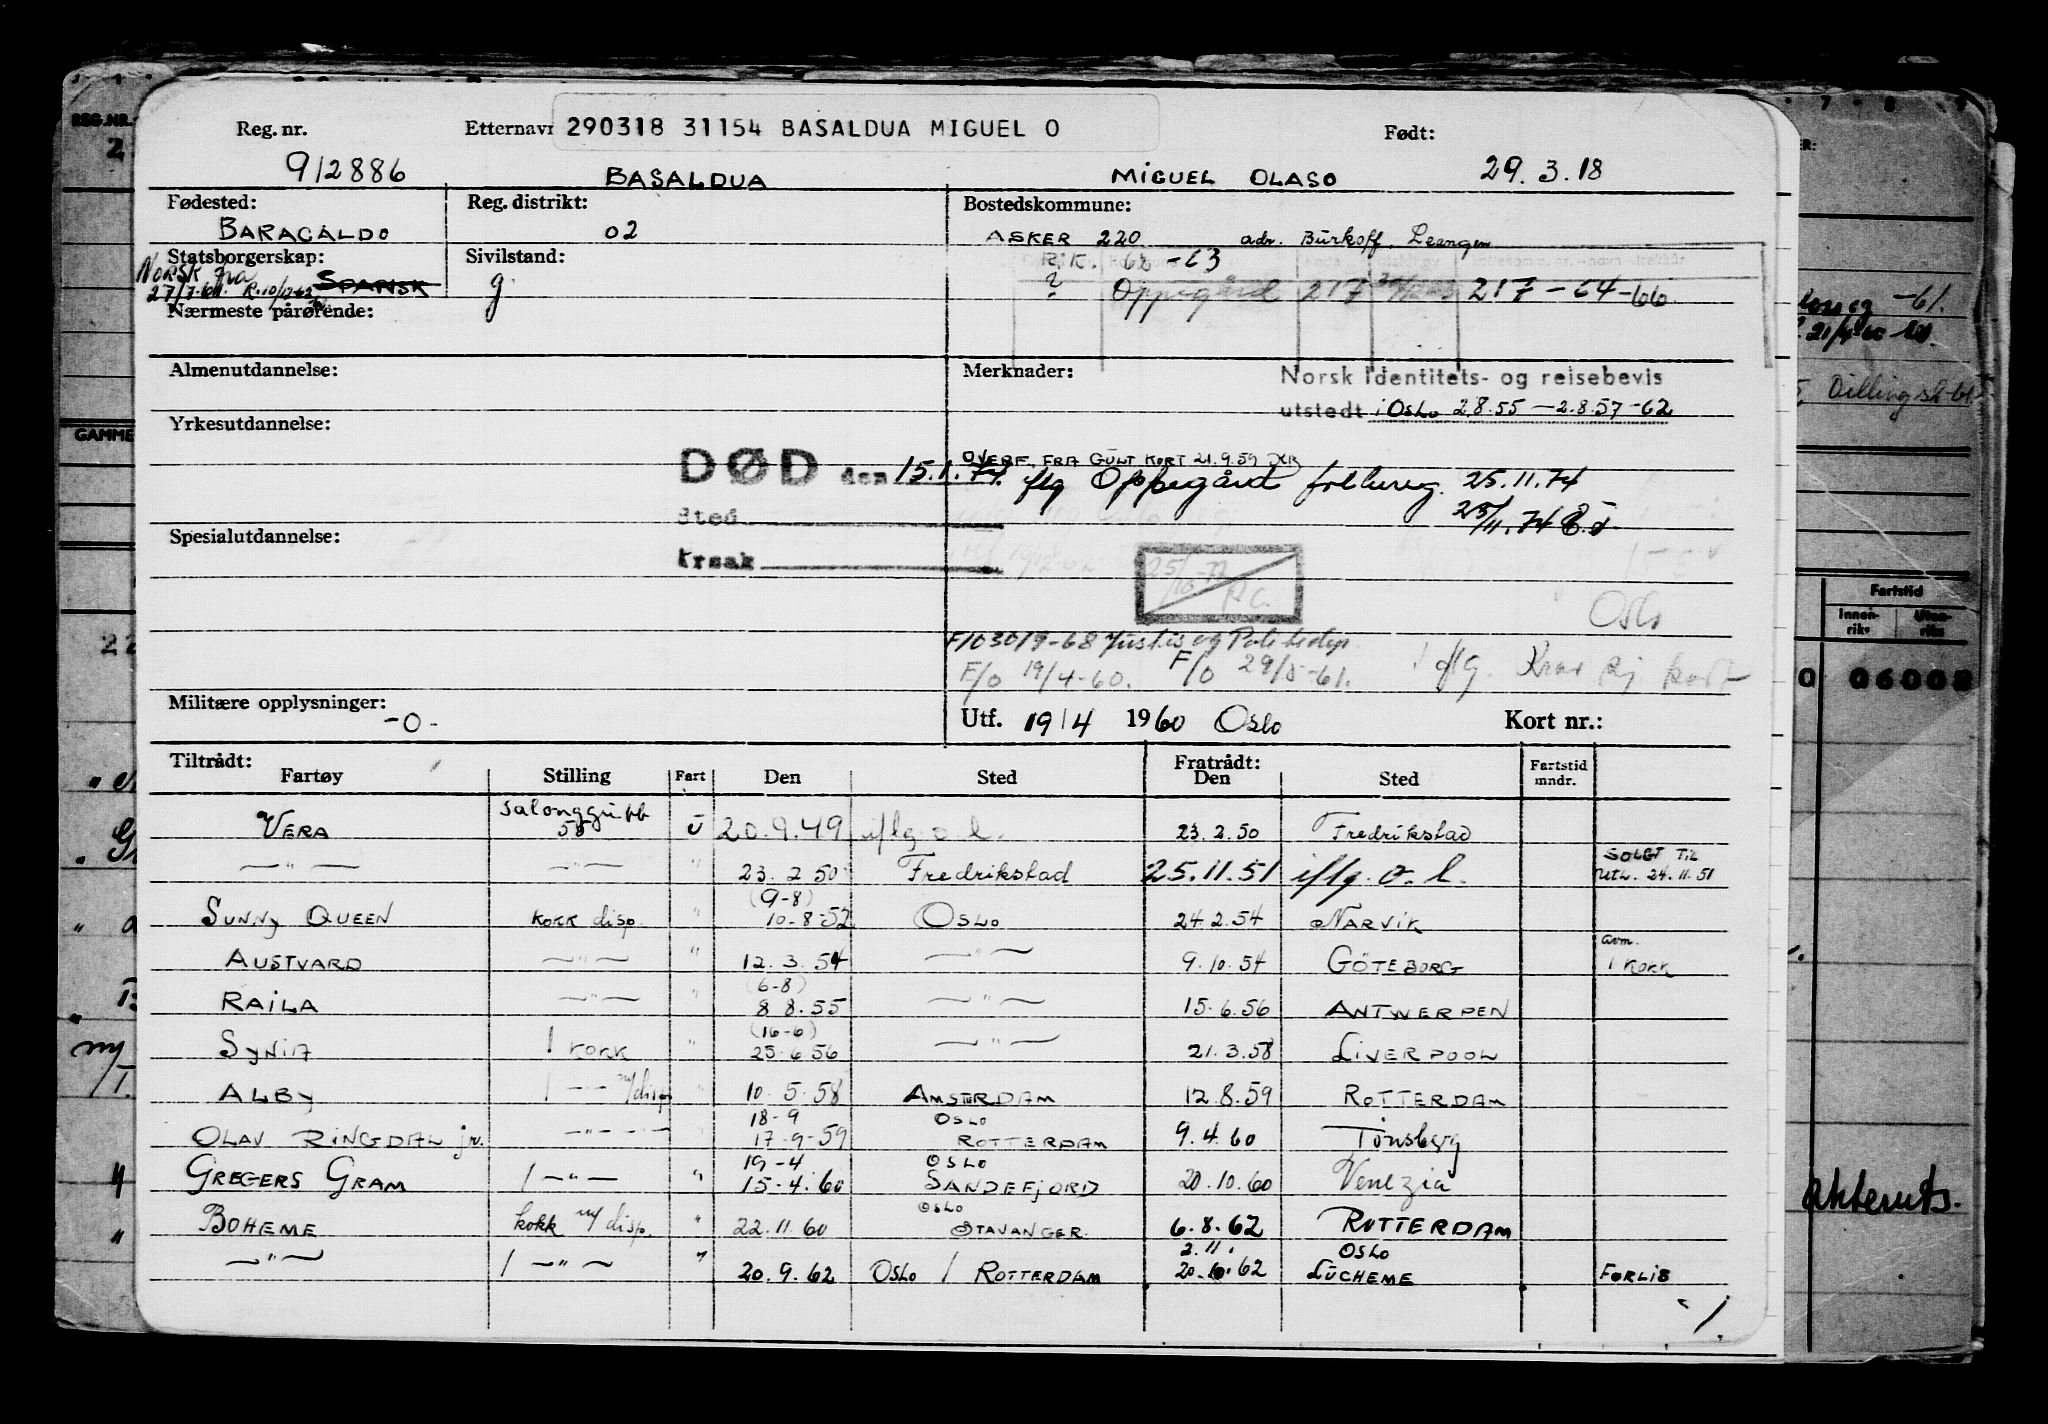 Reg. nr. Etternavn 290318 31154 BASALDUA MIGUEL O Født:
912886 BASALDUA MIGUEL OLASO 29.3.18
Fødested: Reg. distrikt: Bostedskommune:
BARACALDO 02 ASKER 220 adr. Burkoff, Leangen
Statsborgerskap: Sivilstand:
NORSK fra SPANSK g
62-63
? Oppegård 217 217-64-66
Nærmeste pårørende:
Almenutdannelse: Merknader: Norsk identitets- og reisebevis
utstedt i Oslo 2.8.55 - 2.8.57-62
Yrkesutdannelse:
OVERF. FRA GULT KORT 21.9.59
DØD den 15.1.74. iflg Oppegård folkereg. 25.11.74
25/11.74
Sted
Spesialutdannelse:
Årsak
25/10-77
Oslo
F/O 30/9-68 Justis og
F/O 19/4-60. F/O 29/5-61.
Militære opplysninger: -0- Utf. 19/4 1960 Oslo Kort nr.:
Tiltrådt: Fratrådt:
Fartøy Stilling Fart Den Sted Den Sted Fartstid mndr.
VERA salonggutt 55 U 20.9.49 iflg. o.l. 23.2.50 Fredrikstad
—"— —"— " 23.2.50 Fredrikstad 25.11.51 iflg. o.l. SOLGT TIL utl. 24.11.51
(9-8)
SUNNY QUEEN kokk disp. " 10-8-52 OSLO 24.2.54 NARVIK
AUSTVARD —"— " 12.3.54 —"— 9.10.54 GÖTEBORG avm. 1 kokk
(6-8)
RAILA —"— " 8.8.55 —"— 15.6.56 ANTWERPEN
(16-6)
SYNIA 1 kokk " 25.6.56 —"— 21.3.58 LIVERPOOL
ALBY 1 —"— m/disp " 10.5.58 AMSTERDAM 12.8.59 ROTTERDAM
18-9 OSLO
OLAV RINGDAL jr. —"— " 17-9-59 ROTTERDAM 9.4.60 Tønsberg
19-4 OSLO
GREGERS GRAM 1 —"— " 15.4.60 SANDEFJORD 20.10.60 Venezia
OSLO
BOHEME kokk m/disp. " 22.11.60 STAVANGER. 6.8.62 ROTTERDAM
2.11. OSLO
—"— 1 —"— " 20.9.62 OSLO / ROTTERDAM 20.10.62 LUCHEME FORLIS
1.
REG.NR.
GAMME
7 8 9
-61.
Fartstid
Innenriks Utenriks
0 06008